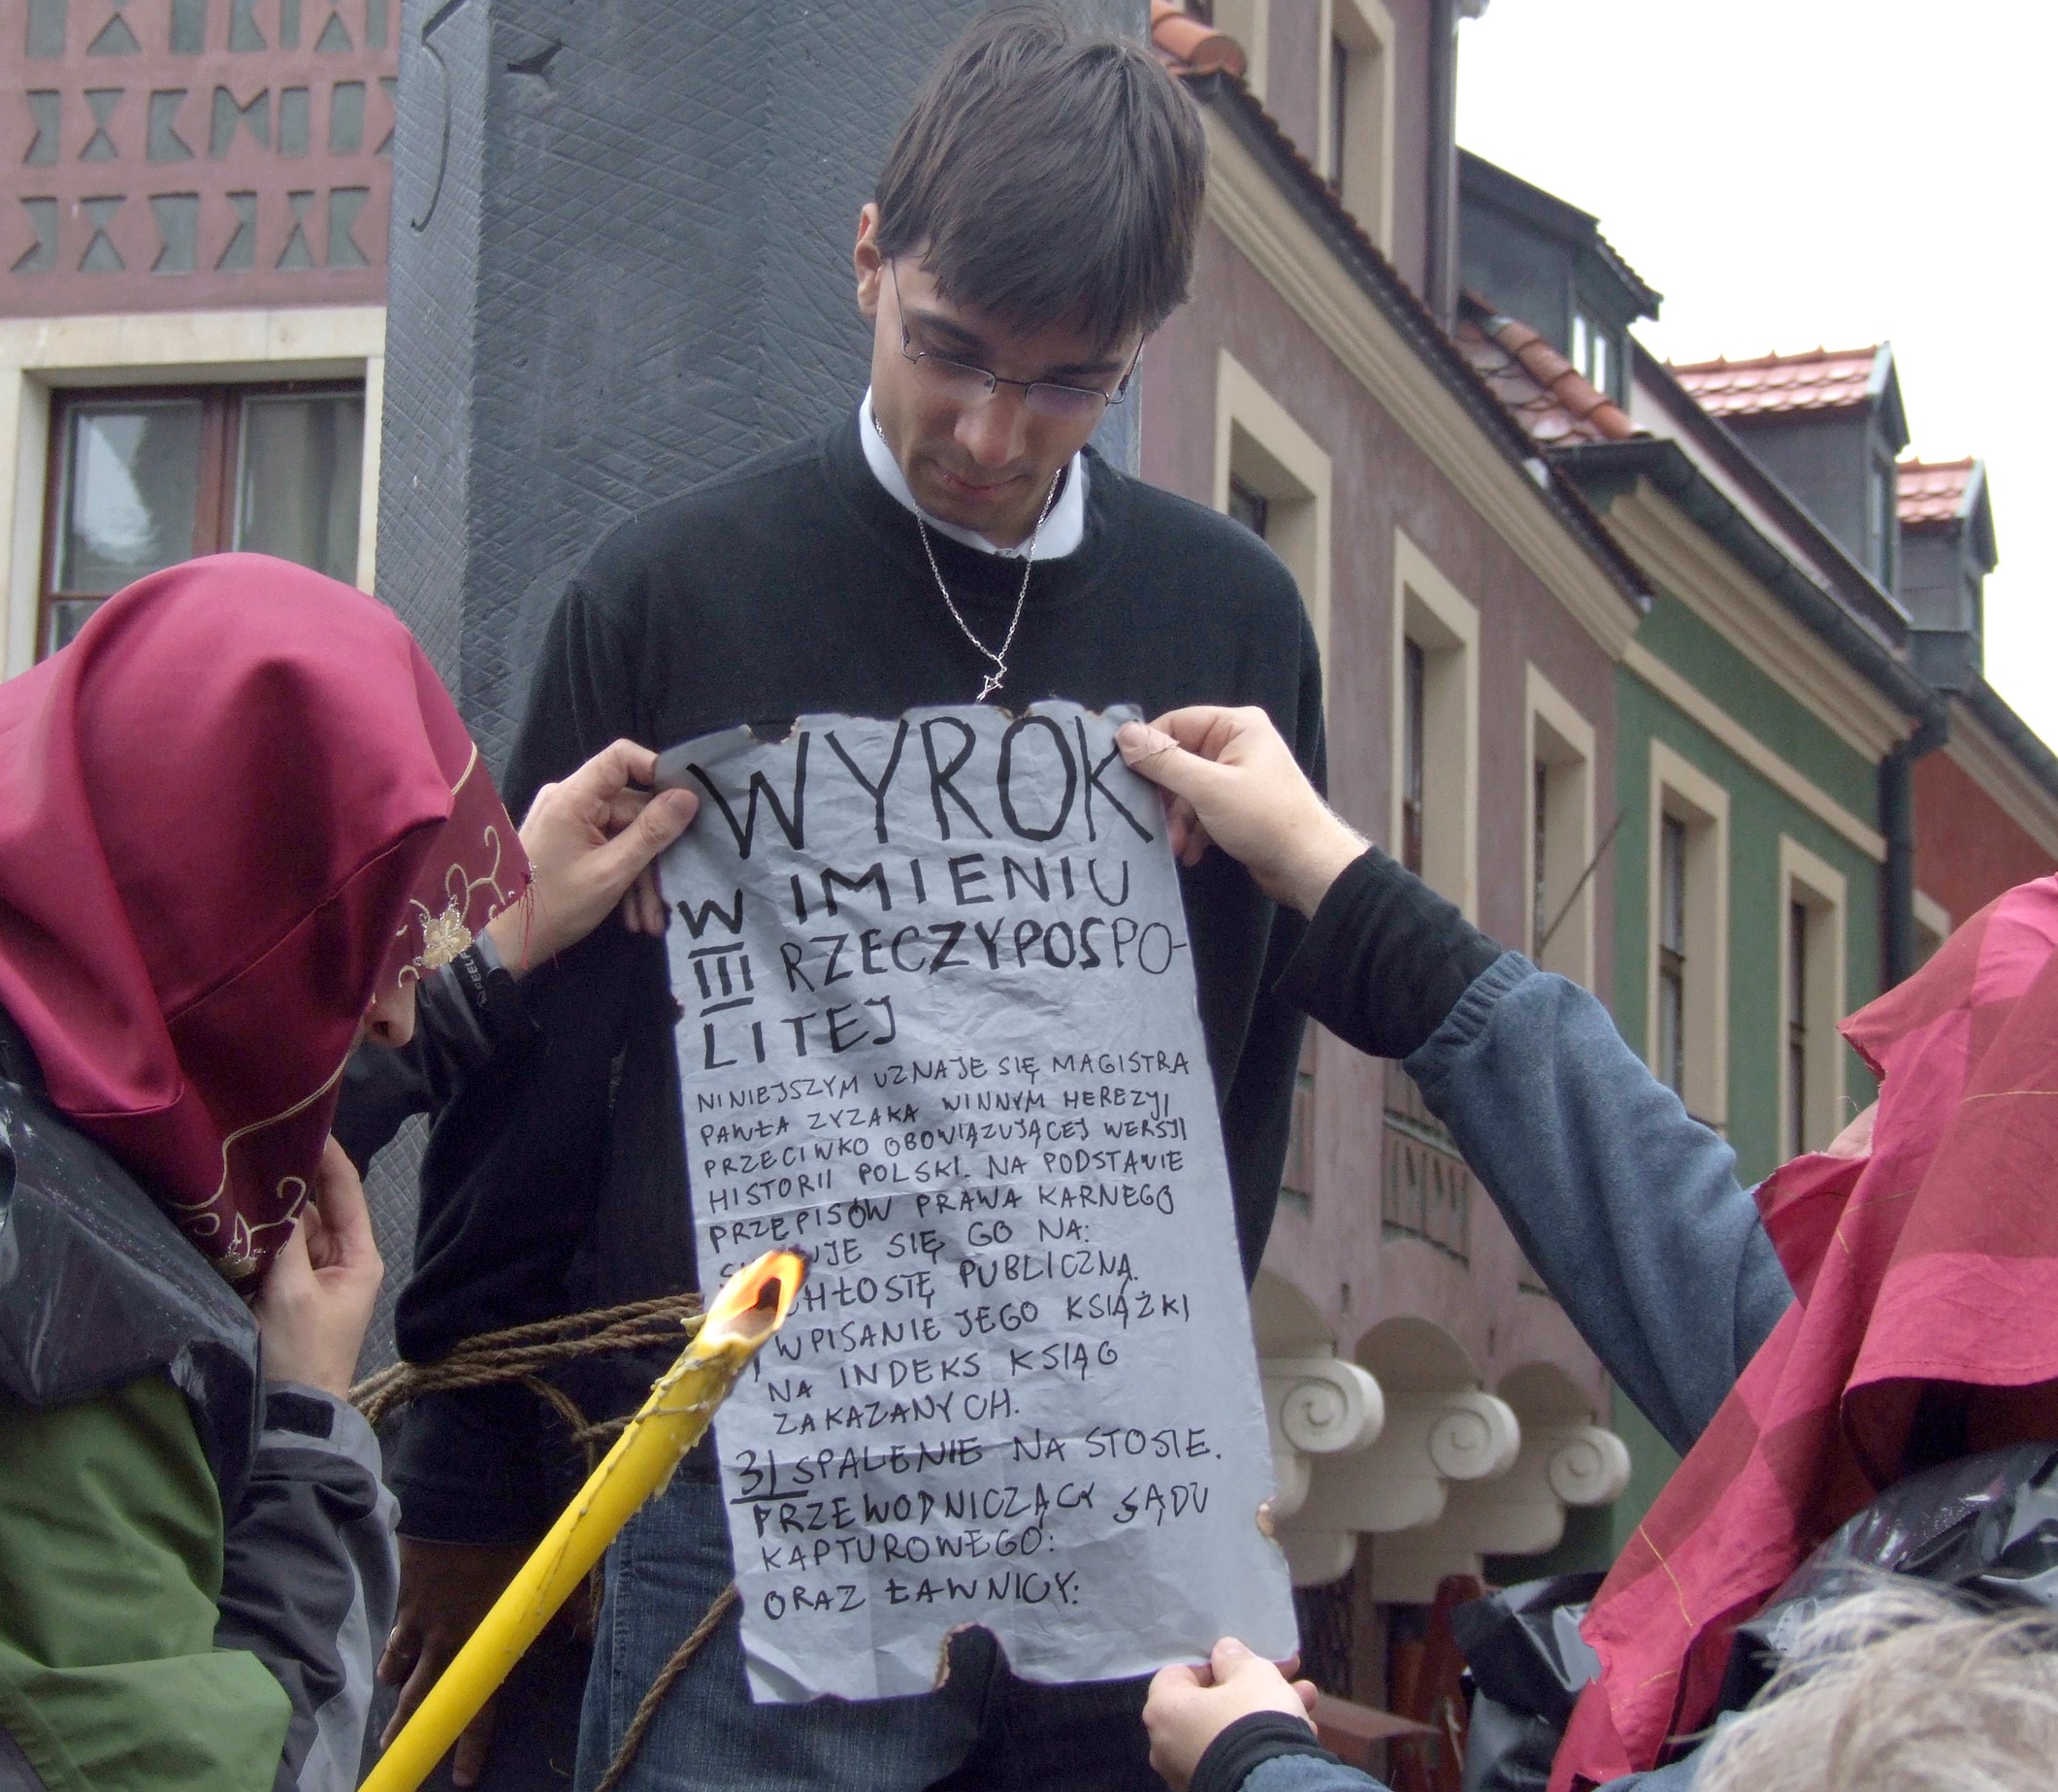 WYROK
W IMIENIU
III RZECZYPOSPO-
LITEJ
NINIEJSZYM UZNAJE SIĘ MAGISTRA
PAWŁA ZYZAKA WINNYM HEREZJI
PRZECIWKO OBOWIĄZUJĄCEJ WERSJI
HISTORII POLSKI. NA PODSTAWIE
PRZEPISÓW PRAWA KARNEGO
SIĘ GO NA:
CHŁOSTĘ PUBLICZNĄ.
WPISANIE JEGO KSIĄŻKI
NA INDEKS KSIĄG
ZAKAZANYCH.
3) SPALENIE NA STOSIE.
PRZEWODNICZĄCY SĄDU
KAPTUROWEGO:
ORAZ ŁAWNICY: